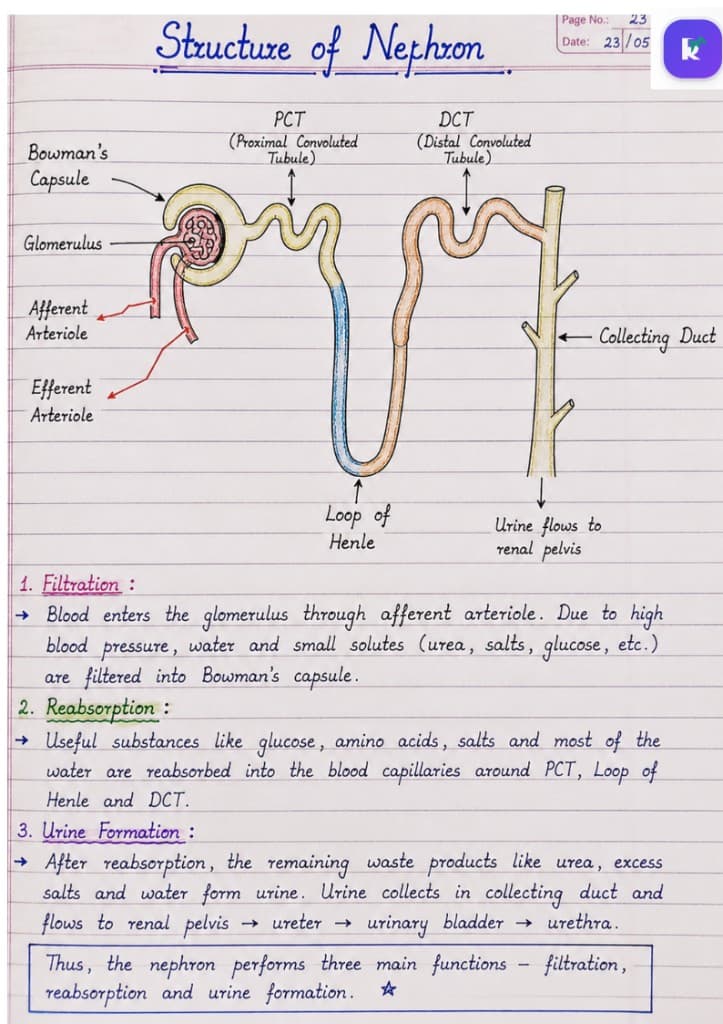 Page No.: 23
Date: 23/05
Structure of Nephron
PCT
(Proximal Convoluted
Tubule)
DCT
(Distal Convoluted
Tubule)
Bowman's
Capsule
Glomerulus
Afferent
Arteriole
Efferent
Arteriole
Collecting Duct
Loop of
Henle
Urine flows to
renal pelvis
1. Filtration :
→ Blood enters the glomerulus through afferent arteriole. Due to high
blood pressure, water and small solutes (urea, salts, glucose, etc.)
are filtered into Bowman's capsule.
2. Reabsorption :
→ Useful substances like glucose, amino acids, salts and most of the
water are reabsorbed into the blood capillaries around PCT, Loop of
Henle and DCT.
3. Urine Formation :
→ After reabsorption, the remaining waste products like urea, excess
salts and water form urine. Urine collects in collecting duct and
flows to renal pelvis → ureter → urinary bladder → urethra.
Thus, the nephron performs three main functions – filtration,
reabsorption and urine formation. ☆